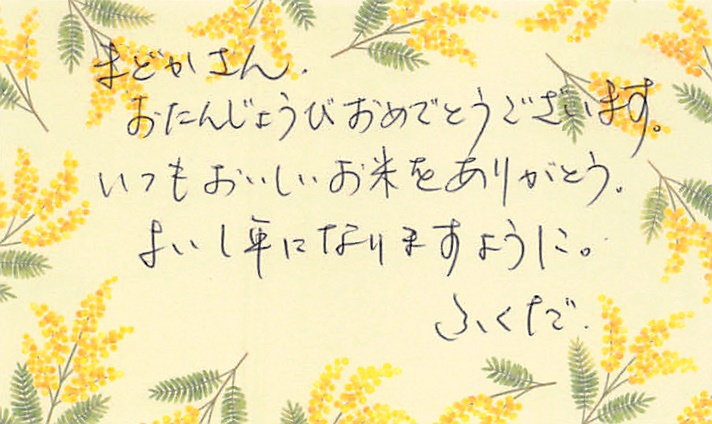 まどかさん.
おたんじょうびおめでとうございます。
いつもおいしいお米をありがとう。
よい1年になりますように。
ふくだ.